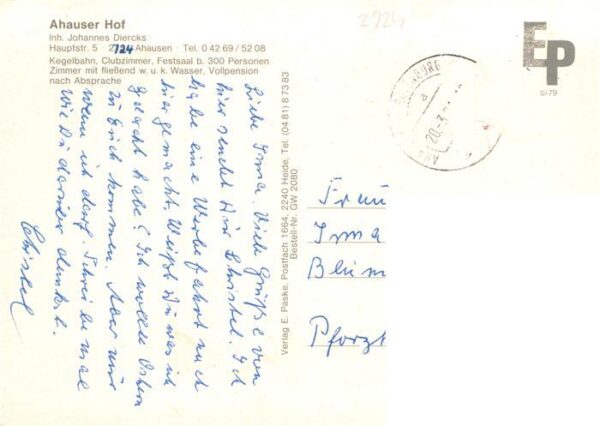 Ahauser Hof
Inh. Johannes Diercks
Hauptstr. 5 · 2724 Ahausen · Tel. 0 42 69 / 52 08
Kegelbahn, Clubzimmer, Festsaal b. 300 Personen
Zimmer mit fließend w. u. k. Wasser, Vollpension
nach Absprache
2724
EP
6/79
20.-3.
a
Liebe Irma. Viele Grüße von
hier sendet Dir Christel. Ich
habe eine Werbefahrt nach
hier gemacht. Weißt Du was ich
gedacht habe? Ich wollte Ostern
zu Euch kommen. Aber nur
wenn ich darf. Schreibe mal
wie Du darüber denkst.
Christel
Verlag E. Paske, Postfach 1664, 2240 Heide, Tel. (04 81) 8 73 83
Bestell-Nr. GW 2080
Frau
Irma
Blüm
Pforz